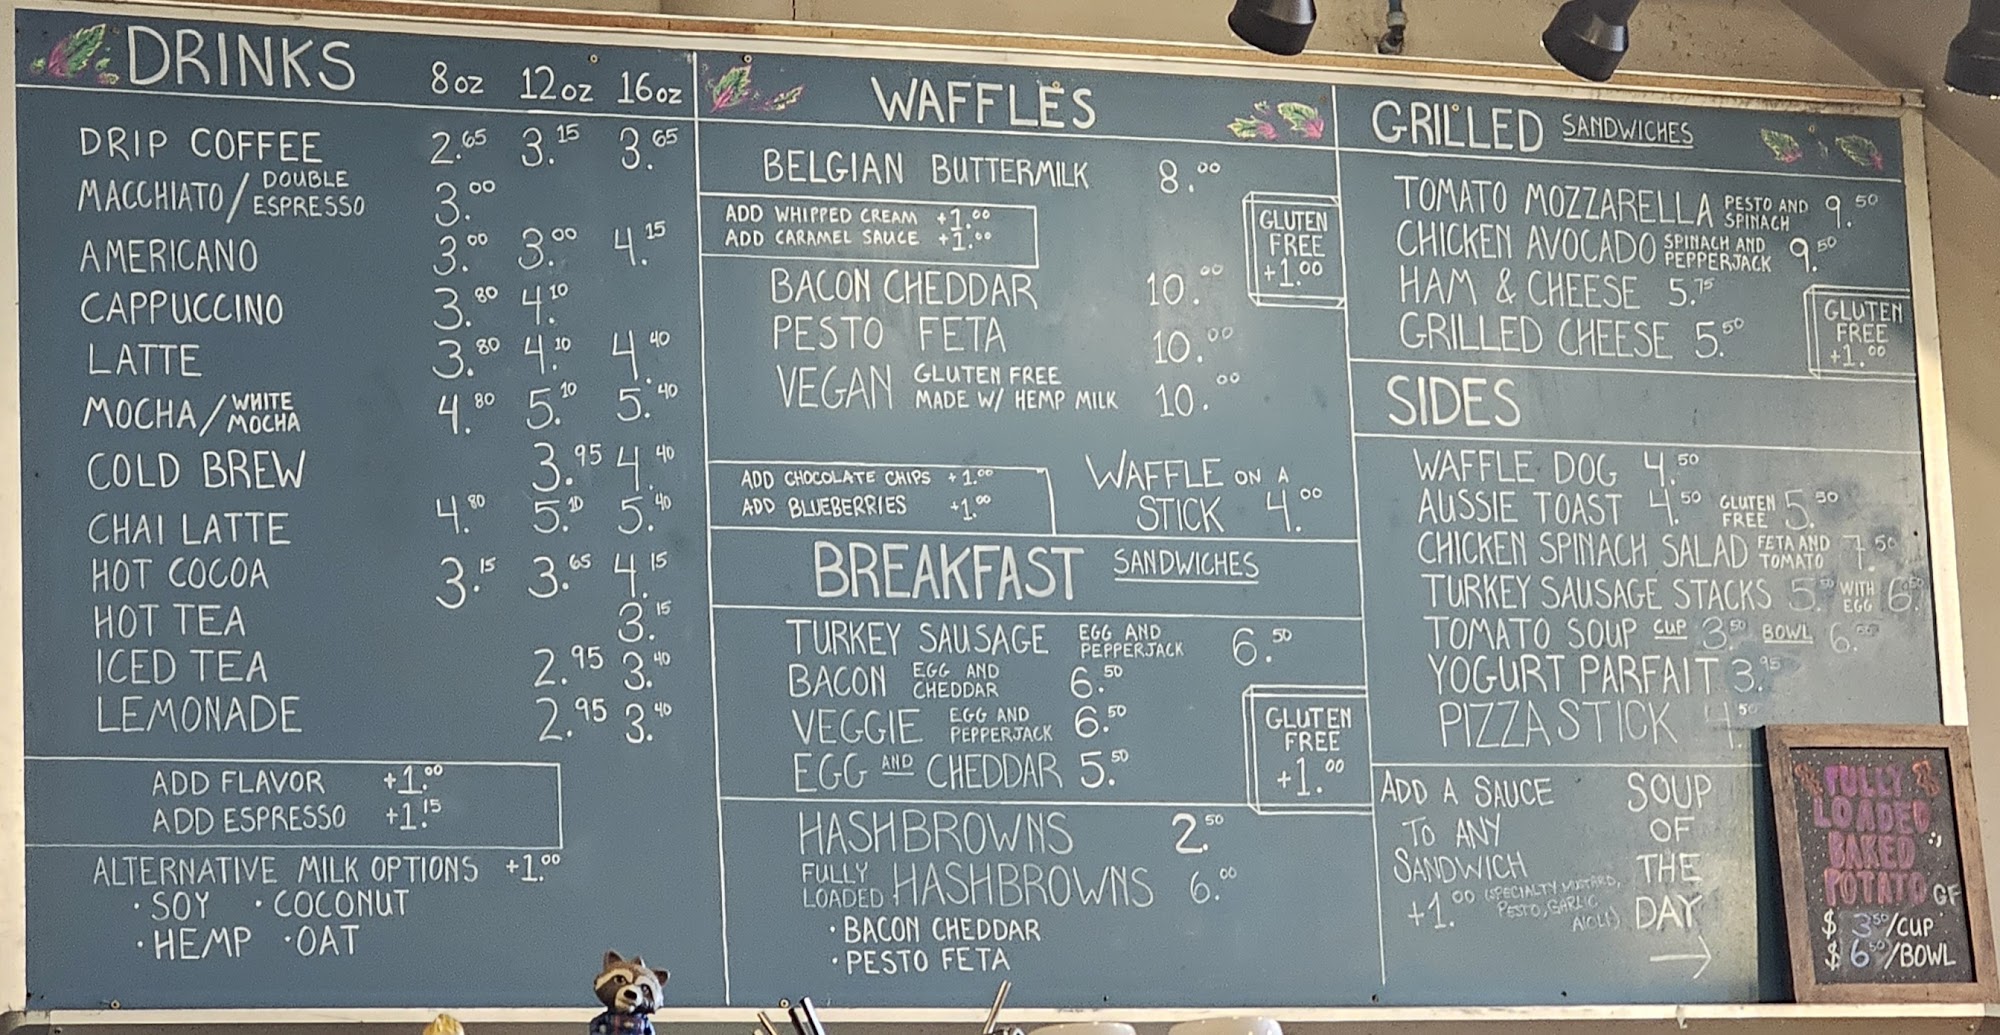 DRINKS 8oz 12oz 16oz
DRIP COFFEE 2.65 3.15 3.65
MACCHIATO/DOUBLE ESPRESSO 3.00
AMERICANO 3.00 3.00 4.15
CAPPUCCINO 3.80 4.10
LATTE 3.80 4.10 4.40
MOCHA/WHITE MOCHA 4.80 5.10 5.40
COLD BREW 3.95 4.40
CHAI LATTE 4.80 5.10 5.40
HOT COCOA 3.15 3.65 4.15
HOT TEA 3.15
ICED TEA 2.95 3.40
LEMONADE 2.95 3.40
ADD FLAVOR +1.00
ADD ESPRESSO +1.15
ALTERNATIVE MILK OPTIONS +1.00
·SOY ·COCONUT
·HEMP ·OAT
WAFFLES
BELGIAN BUTTERMILK 8.00
ADD WHIPPED CREAM +1.00
ADD CARAMEL SAUCE +1.00
GLUTEN
FREE
+1.00
BACON CHEDDAR 10.00
PESTO FETA 10.00
VEGAN GLUTEN FREE MADE W/ HEMP MILK 10.00
ADD CHOCOLATE CHIPS +1.00
ADD BLUEBERRIES +1.00
WAFFLE ON A
STICK 4.00
BREAKFAST SANDWICHES
TURKEY SAUSAGE EGG AND PEPPERJACK 6.50
BACON EGG AND CHEDDAR 6.50
VEGGIE EGG AND PEPPERJACK 6.50
EGG AND CHEDDAR 5.50
GLUTEN
FREE
+1.00
HASHBROWNS 2.50
FULLY LOADED HASHBROWNS 6.00
·BACON CHEDDAR
·PESTO FETA
GRILLED SANDWICHES
TOMATO MOZZARELLA PESTO AND SPINACH 9.50
CHICKEN AVOCADO SPINACH AND PEPPERJACK 9.50
HAM & CHEESE 5.75
GRILLED CHEESE 5.50
GLUTEN
FREE
+1.00
SIDES
WAFFLE DOG 4.50
AUSSIE TOAST 4.50 GLUTEN FREE 5.50
CHICKEN SPINACH SALAD FETA AND TOMATO 7.50
TURKEY SAUSAGE STACKS 5.50 WITH EGG 6.50
TOMATO SOUP CUP 3.50 BOWL 6.50
YOGURT PARFAIT 3.95
PIZZA STICK 4.50
ADD A SAUCE
TO ANY
SANDWICH
+1.00 (SPECIALTY MUSTARD,
PESTO, GARLIC
AIOLI)
SOUP
OF
THE
DAY
FULLY
LOADED
BAKED
POTATO GF
$3.50/CUP
$6.50/BOWL